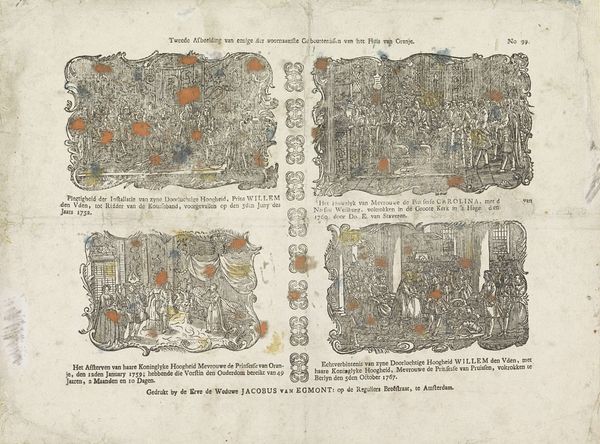 Tweede Afbeelding van eenige der voornaamste Gebeurtenissen van het Huis van Oranje. No 99.
Plegtigheid der Installatie van zyne Doorluchtige Hoogheid, Prins WILLEM
den Vden, tot Ridder van de Kousseband, voorgevallen op den 5den Juny des
Jaars 1752.
Het Huwelyk van Mevrouwe de Prinsesse CAROLINA, met d van
Nassau Weilburg, voltrokken in de Groote Kerk in 's Hage den
1760. door Do. E. van Staveren.
Het Afsterven van haare Koninglyke Hoogheid Mevrouwe de Prinsesse van Oran-
je, den 12den January 1759; hebbende die Vorstin den Ouderdom bereikt van 49
Jaaren, 2 Maanden en 10 Dagen.
Echtverbintenis van zyne Doorluchtige Hoogheid WILLEM den Vden, met
haare Koninglyke Hoogheid, Mevrouwe de Prinsesse van Pruissen, voltrokken te
Berlyn den 5den October 1767.
Gedrukt by de Erve de Weduwe JACOBUS VAN EGMONT: op de Reguliers Breêstraat, te Amsterdam.